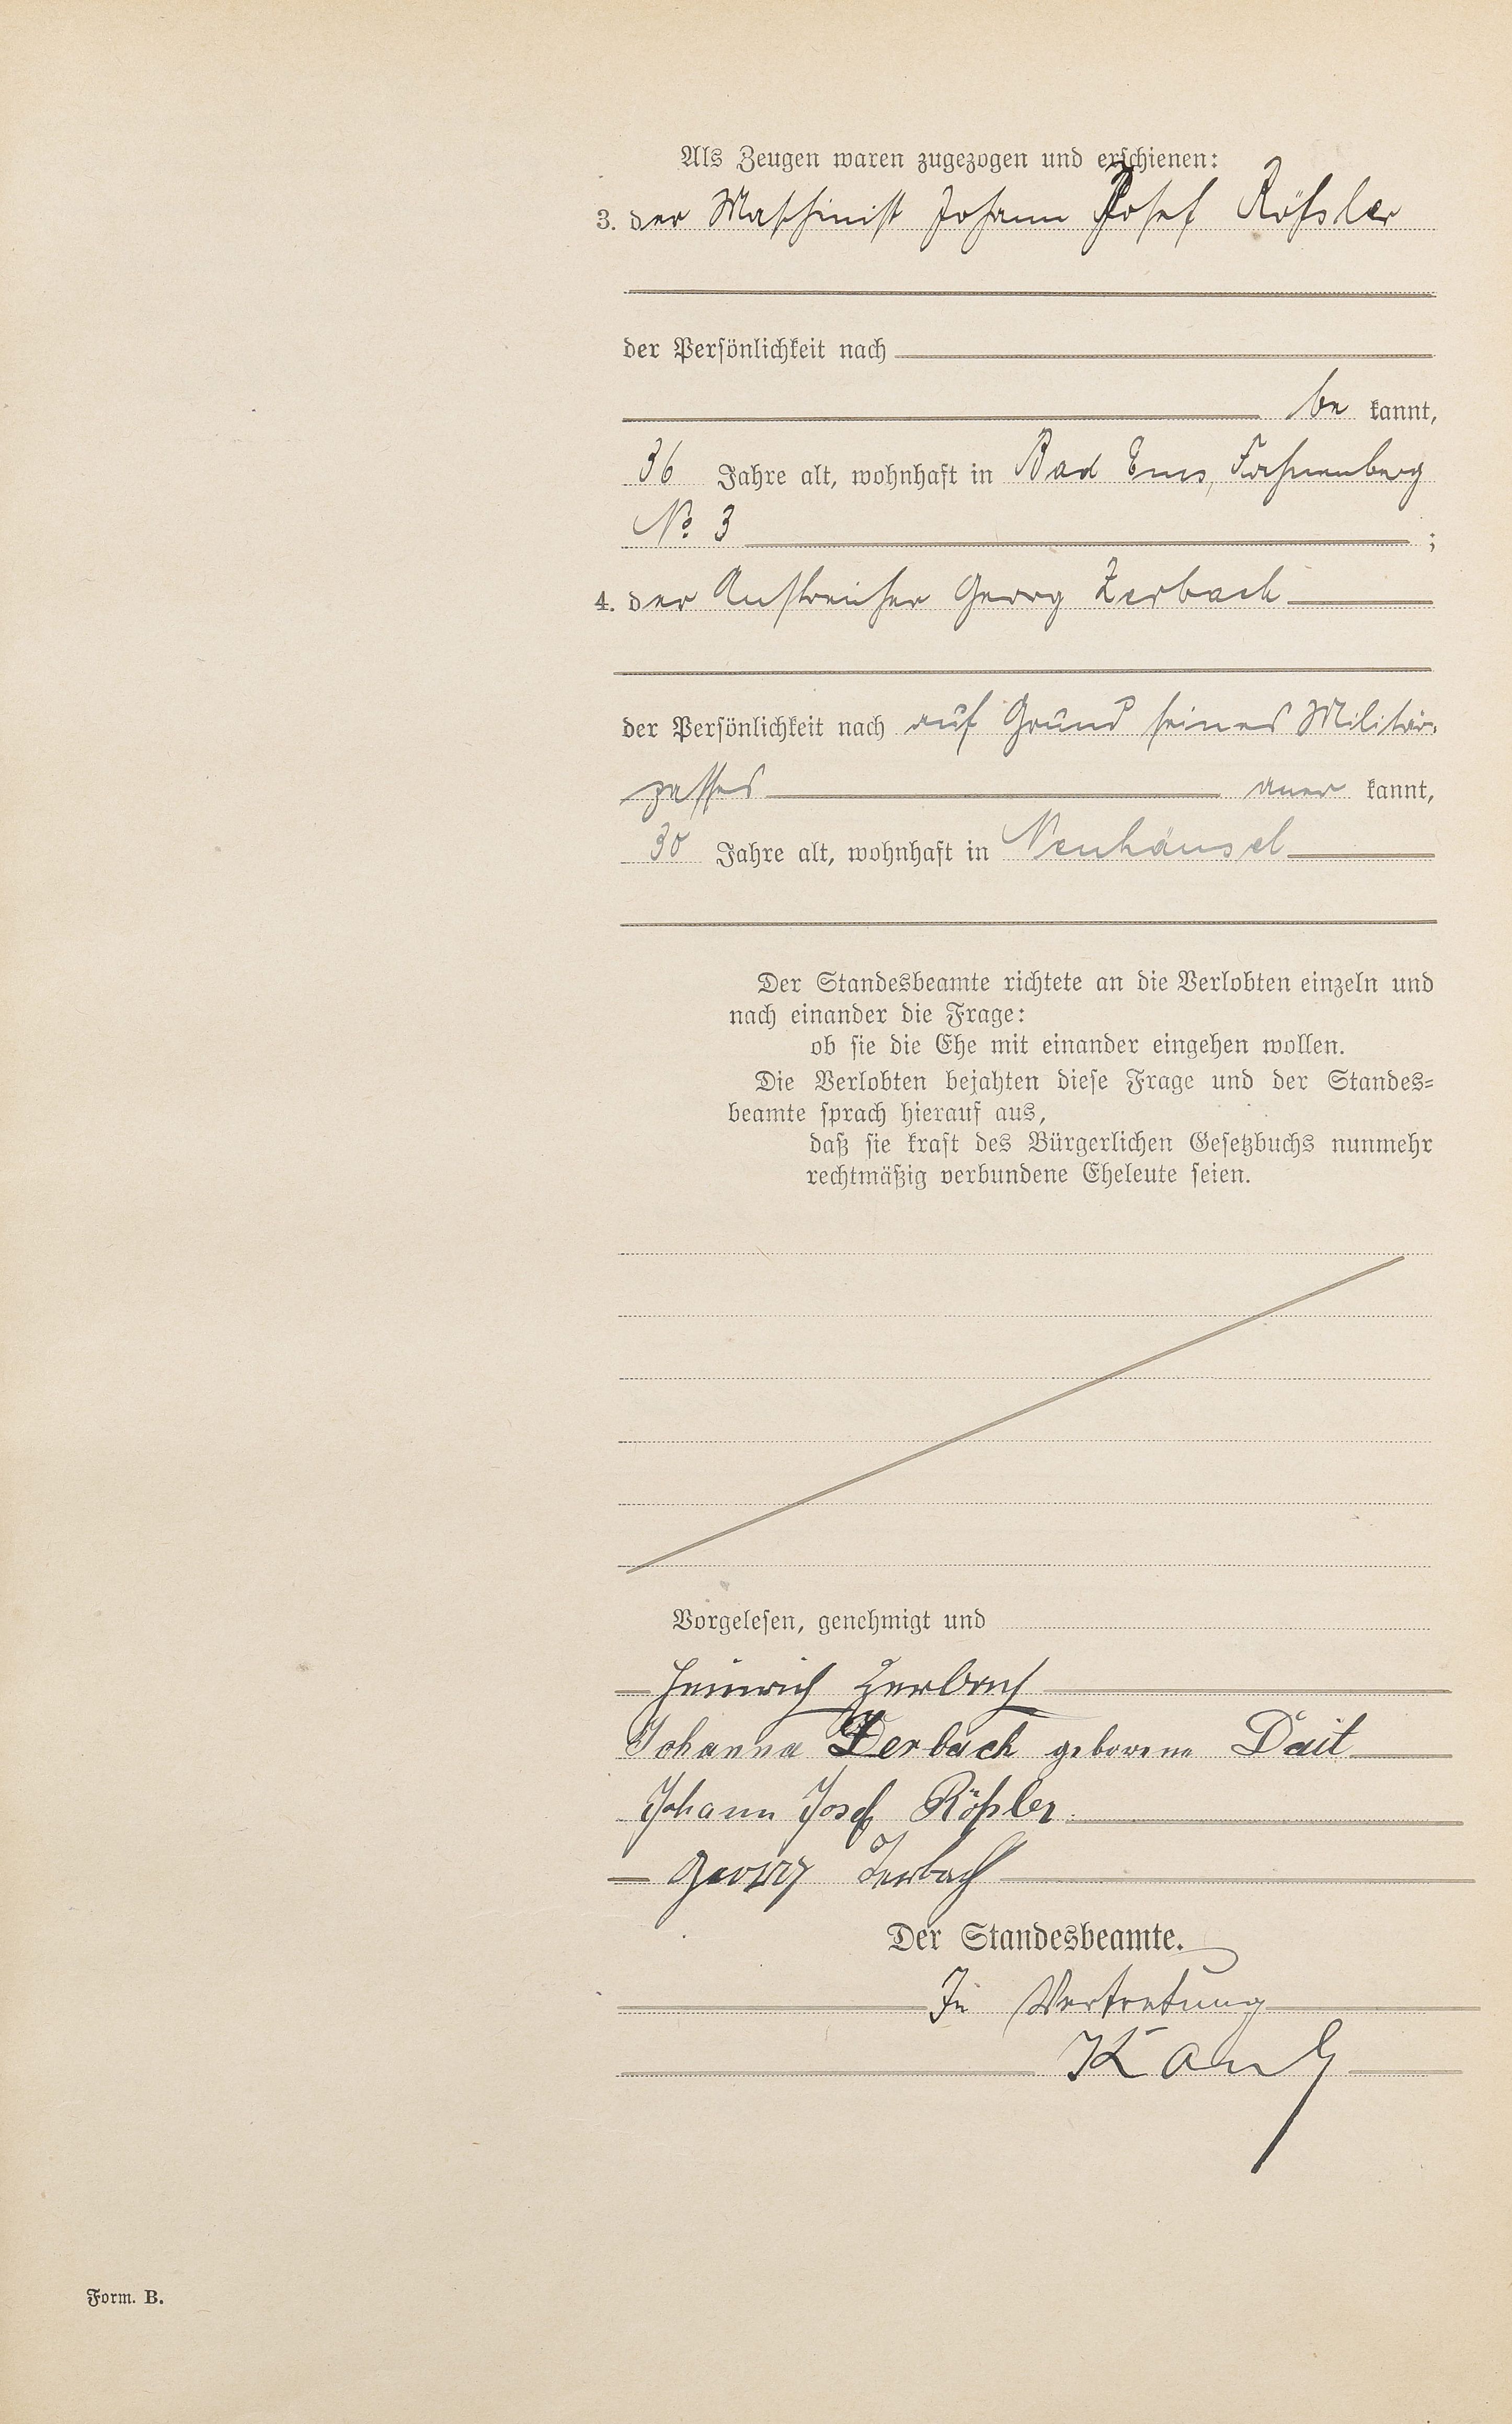 Als Zeugen waren zugezogen und erschienen:
3. der Maschinist Johann Josef Rößler
der Persönlichkeit nach
be kannt,
36 Jahre alt, wohnhaft in Bad Ems, Fahnenberg
No 3 ;
4. der Anstreicher Georg Zerbach
der Persönlichkeit nach auf Grund seines Militär-
passes aner kannt,
30 Jahre alt, wohnhaft in Neuhäusel
Der Standesbeamte richtete an die Verlobten einzeln und
nach einander die Frage:
ob sie die Ehe mit einander eingehen wollen.
Die Verlobten bejahten diese Frage und der Standes-
beamte sprach hierauf aus,
daß sie kraft des Bürgerlichen Gesetzbuchs nunmehr
rechtmäßig verbundene Eheleute seien.
Vorgelesen, genehmigt und
Heinrich Zerbach
Johanna Zerbach geborene
Johann Josef Rößler.
Georg Zerbach
Der Standesbeamte.
In Vertretung
Form. B.